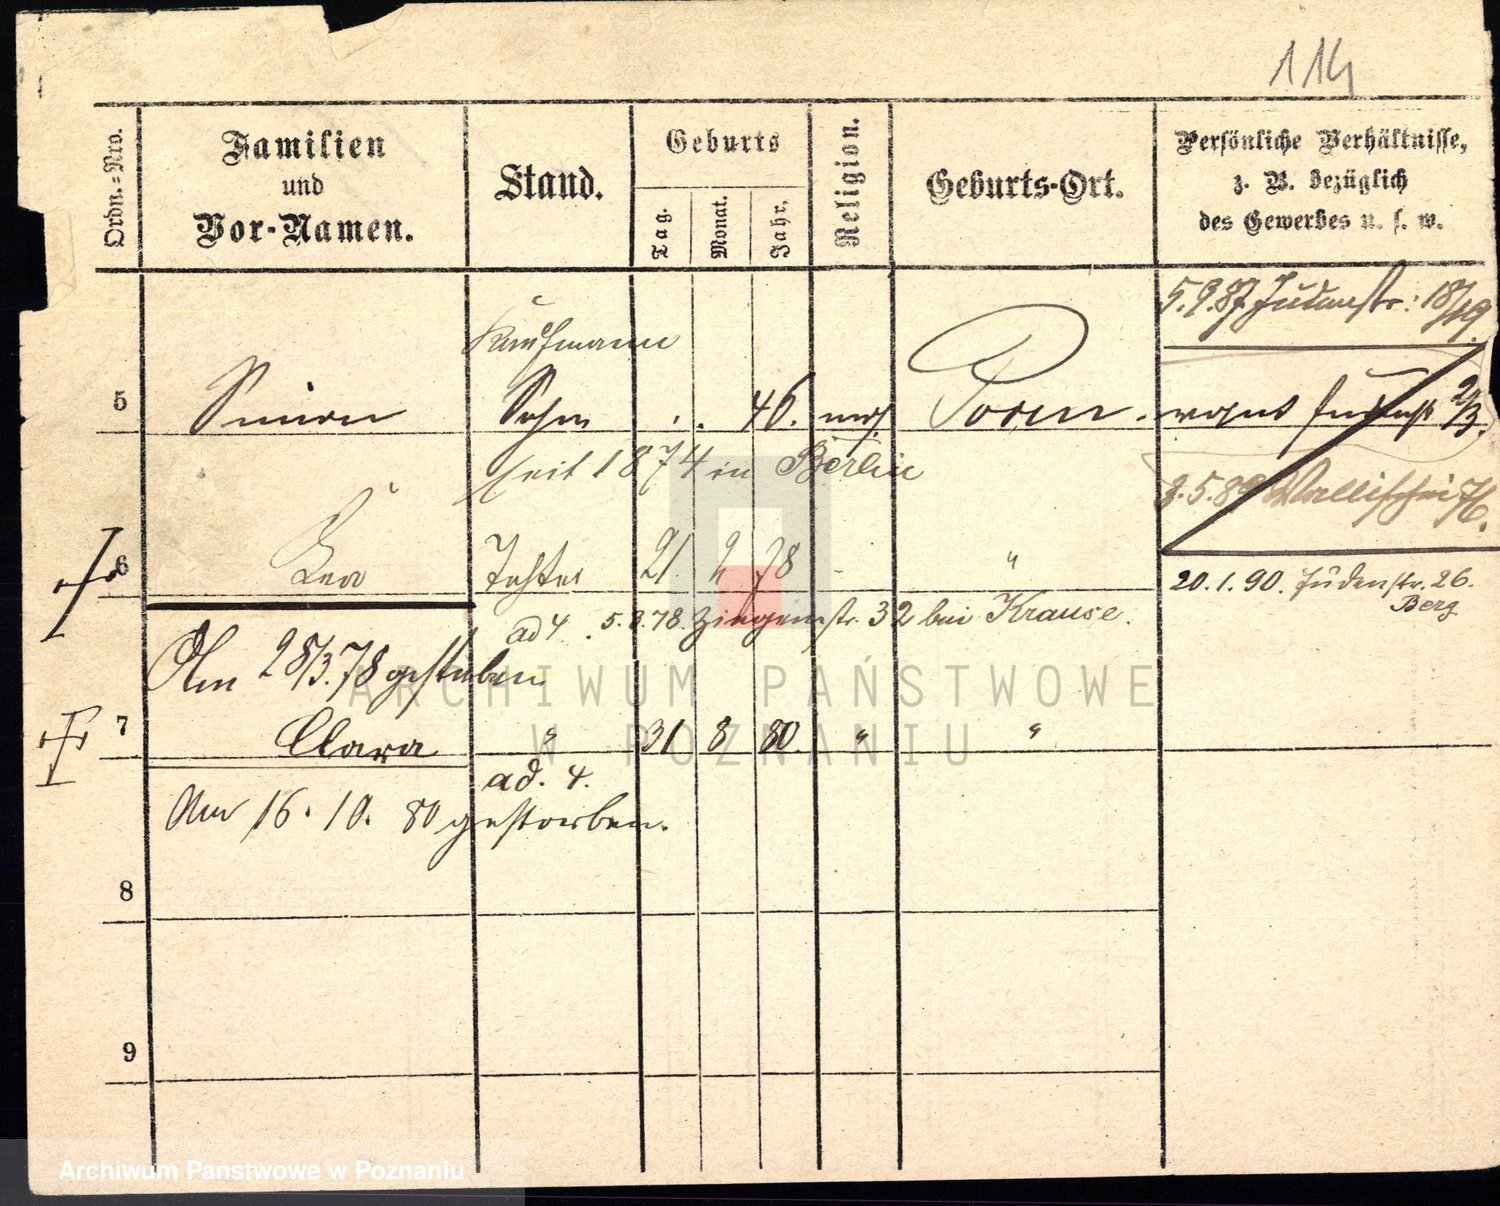 114
Ordn.-Nro.
Familien
und
Vor-Namen.
Stand.
Geburts
Tag.
Monat.
Jahr,
Religion.
Geburts-Ort.
Persönliche Verhältnisse,
z. B. bezüglich
des Gewerbes u. s. w.
5.9.87 Judenstr: 18/19.
Kaufmann
5 Simon Sohn . . 46. mos. Posen. wohnt Judenstr 2/3.
seit 1874 in Berlin
3.5.89 Wallischei 76.
6 Lea Tochter 21. 2 78 "
20.1.90. Judenstr. 26.
Berg
ad 4 . 5.3.78. Ziegenstr. 32 bei Krause.
Am 28/3.78 gestorben
7 Clara " 31 8 80. " "
ad. 4.
Am 16. 10. 80 gestorben.
8
9
ARCHIWUM PAŃSTWOWE
W POZNANIU
Archiwum Państwowe w Poznaniu